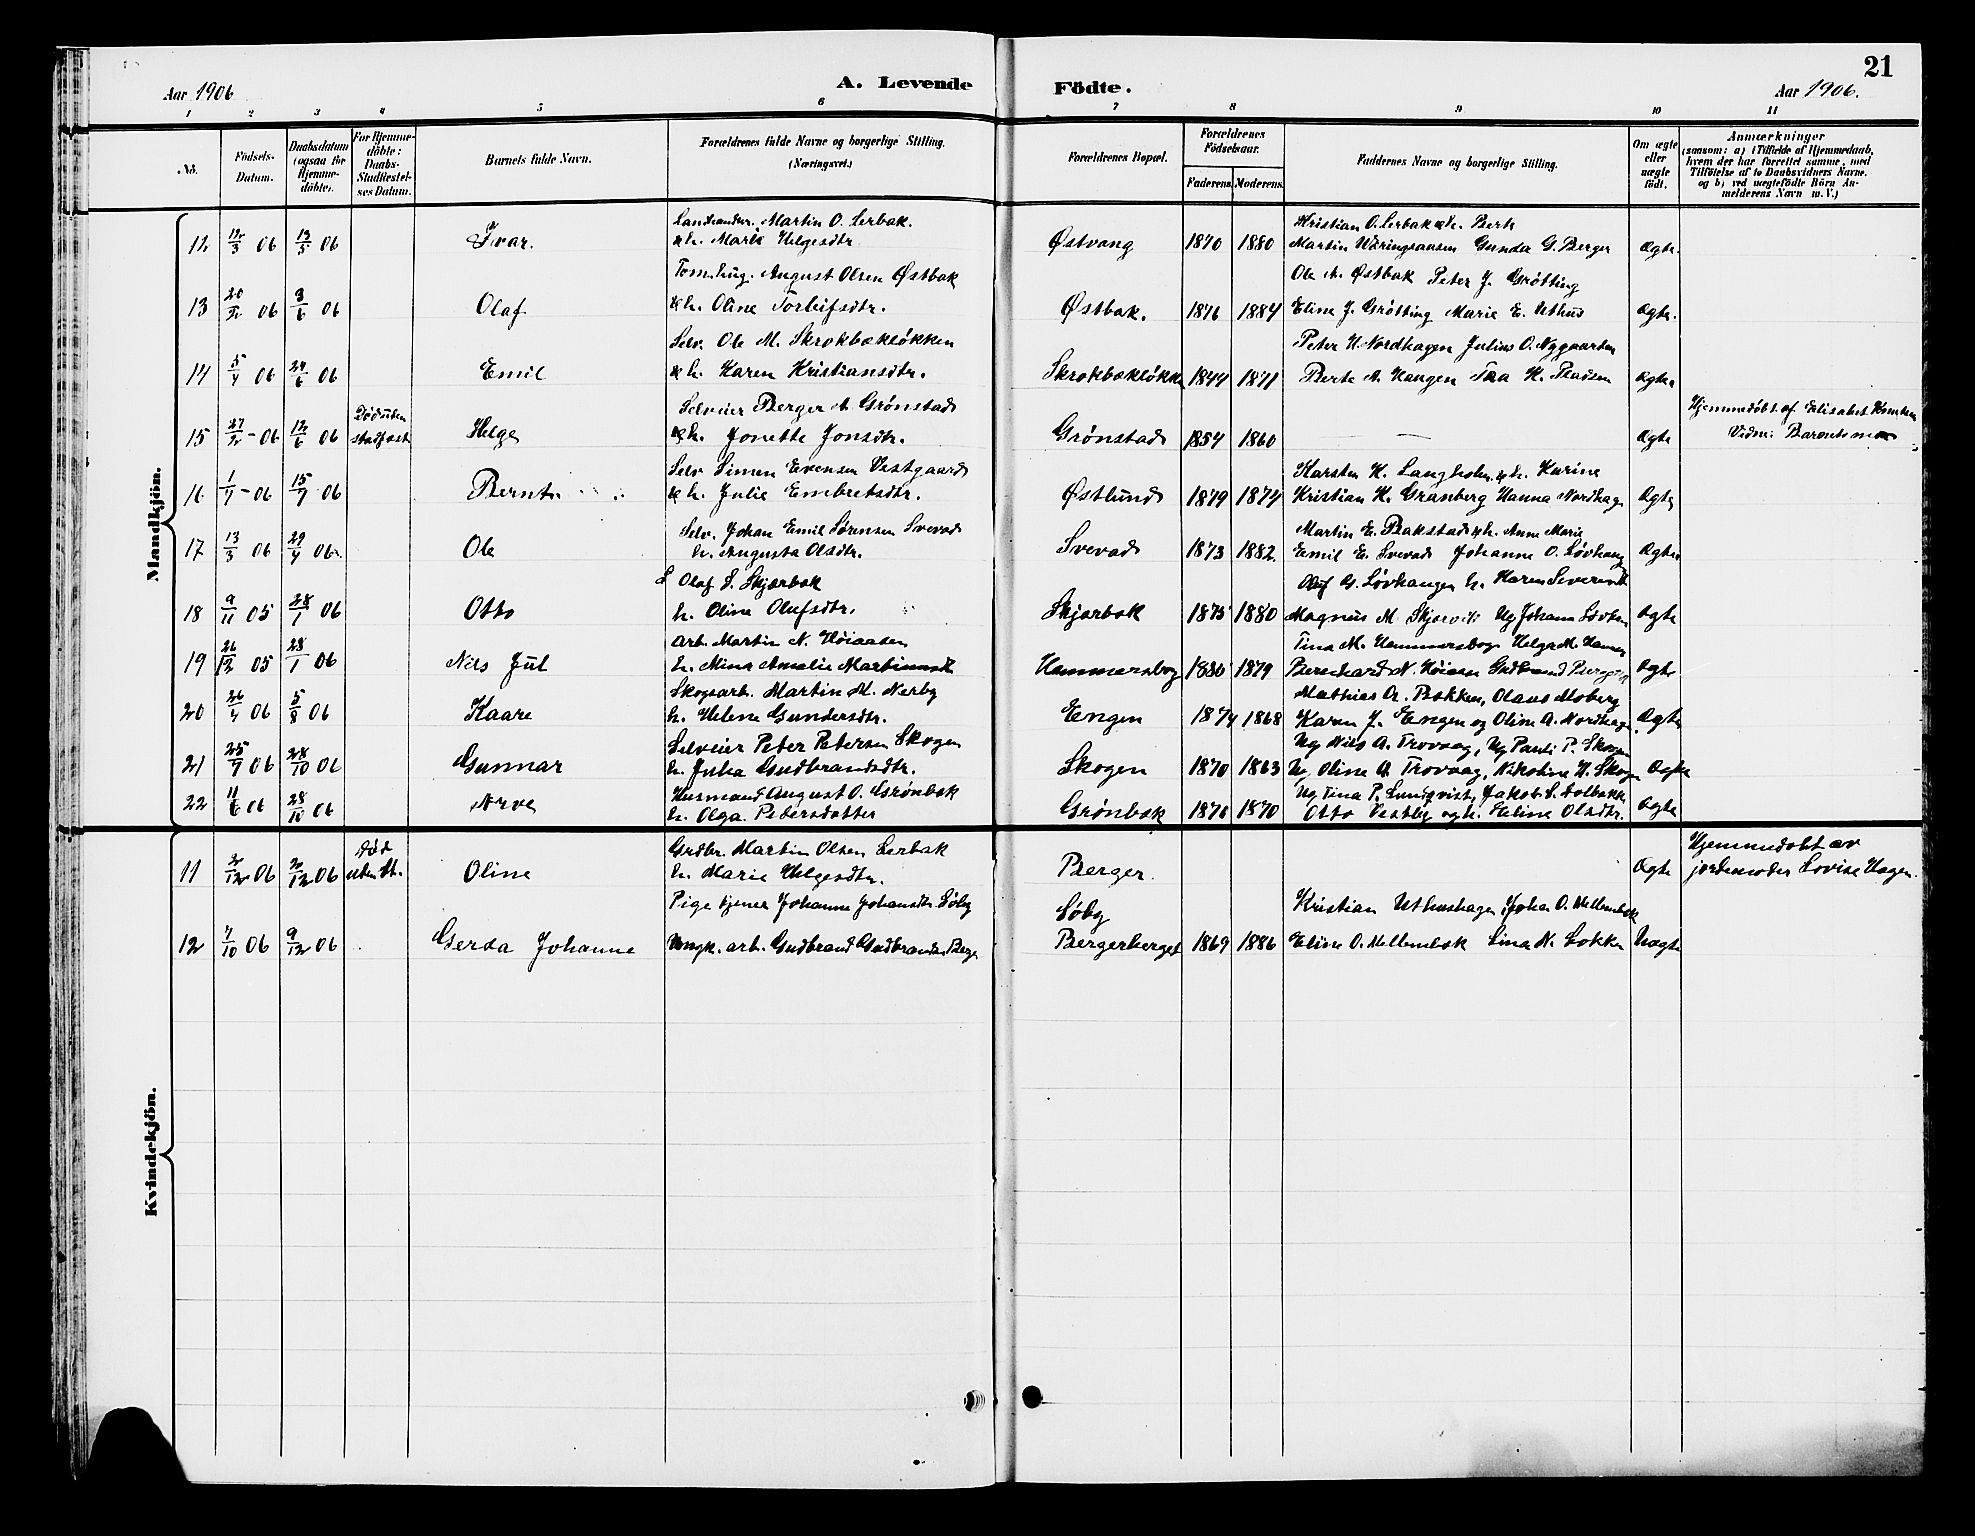 21
Aar 1906
A. Levende
Födte.
Aar 1906.
1 2 3 4 5 6 7 8 9 10 11
No.
Födsels-
Datum.
Daabsdatum
(ogsaa for
Hjemme-
döbte).
For Hjemme-
döbte:
Daabs-
Stadfæstel-
ses Datum.
Barnets fulde Navn.
Forældrenes fulde Navne og borgerlige Stilling.
(Næringsvei.)
Forældrenes Bopæl.
Forældrenes
Födselsaar.
Faderens.
Moderens.
Faddernes Navne og borgerlige Stilling.
Om ægte
eller
uægte
födt.
Anmærkninger
(saasom: a) i Tilfælde af Hjemmedaab,
hvem der har forrettet samme, med
Tilföielse af to Daabsvidners Navne,
og b) ved uægtefödte Börn An-
melderens Navn m. V.)
Mandkjön.
Landhandler. Martin O. Lerbak. Kristian O. Lerbak &h. Berte
12 12/3 06 13/5 06 Ivar. &h. Marie Helgesdtr. Østvang 1870 1880 Martin Gunda G. Berger Ægte.
August Olsen Østbak Ole A. Østbak Peter J. Grøtting
13 06 3/6 06 Olaf &h. Oline Torleifsdtr. Østbak. 1876 1884 Eline J. Grøtting Marie E. Uthus Ægte.
Selv. Ole M. Skrokbækløkken Peter H. Nordhagen Julius O. Nygaarden
14 5/4 06 24/6 06 Emil &h. Karen Kristiansdtr. Skrokbækløkk 1844 1871 Berte A. Haugen Ægte
Død uden Selveier Berger A. Grønstad Hjemmedøbt af Elisabet
15 27/2 - 06 12/6 06 stadfæst Helge &h. Jonette Jonsdtr. Grønstad 1854 1860 — Ægte Vidne: Barnets mor
Selv Simen Evensen Vestgaard Karsten H. Langholen &h. Karine
16 1/7 - 06 15/7 06 Bernt &h. Julie Embretsdtr. Østlund 1879 1874 Kristian H. Granberg Hanna Nordhag Ægte
Selv. Johan Emil Sørensen Svevad Martin E. Bakstad &h. Anne Marie
17 13/3 06 29/4 06 Ole h. Augusta Olsdtr. Svevad 1873 1882. Emil E. Svevad Johanne O. Løvhaug Ægte
S Olaf S. Skjærbak Oluf G. Løvhaugen h. Karen
18 9/11 05 28/1 06 Otto h. Oline Olufsdtr. Skjærbak 1875 1880 Magnus M. Johann Ægte
Arb. Martin N. Høiaasen Tina M. Hammersbog Helga M. Hamm
19 26/12 05 28/1 06 Nils Jul h. Mina Amalie Martinusdt Hammersbog 1880 1879 Bernhard N. Høiaas Gudbrand Ægte
Skogsarb. Martin M. Nerby Mathias A. Bakken, Olaus Moberg
20 26/4 06 5/8 06 Kaare h. Helene Gundersdtr. Engen 1874 1868 Karen J. Engen og Oline A. Nordhag Ægte
Selveier Peter Petersen Skogen Ug Nils A. Trovaag, Ug Pauli P. Skogen
21 25/9 06 28/10 06 Gunnar h. Julia Gudbrandsdtr. Skogen 1870 1863 Ug, Oline A. Trovaag, Nikoline H. Skogen Ægte
Husmand August O. Grønbak Ug Tina P. Lundqvist, Jakob S. Solbakk
22 11/6 06 28/10 06 Arve h. Olga Petersdatter Grønbak 1876 1870 Otto Vestby og h. Heline Olsdtr. Ægte
Kvindekjön.
Død Grdbr. Martin Olsen Lerbak Hjemmedøbt av
11 2/12 06 2/12 06 uten st. Oline h. Marie Helgesdtr. Berger. Ægte jordemoder Lovise Hagen.
Pige tjener Johanne Johansdtr. Søby Søby Kristian Uthushagen Johan O. Mellembak
12 7/10 06 9/12 06 Gerda Johanne Ungk. arb. Gudbrand Gudbrandsen Berge Bergerberget 1869 1886 Eline O. Mellembak Lina N. Løkken Uægte